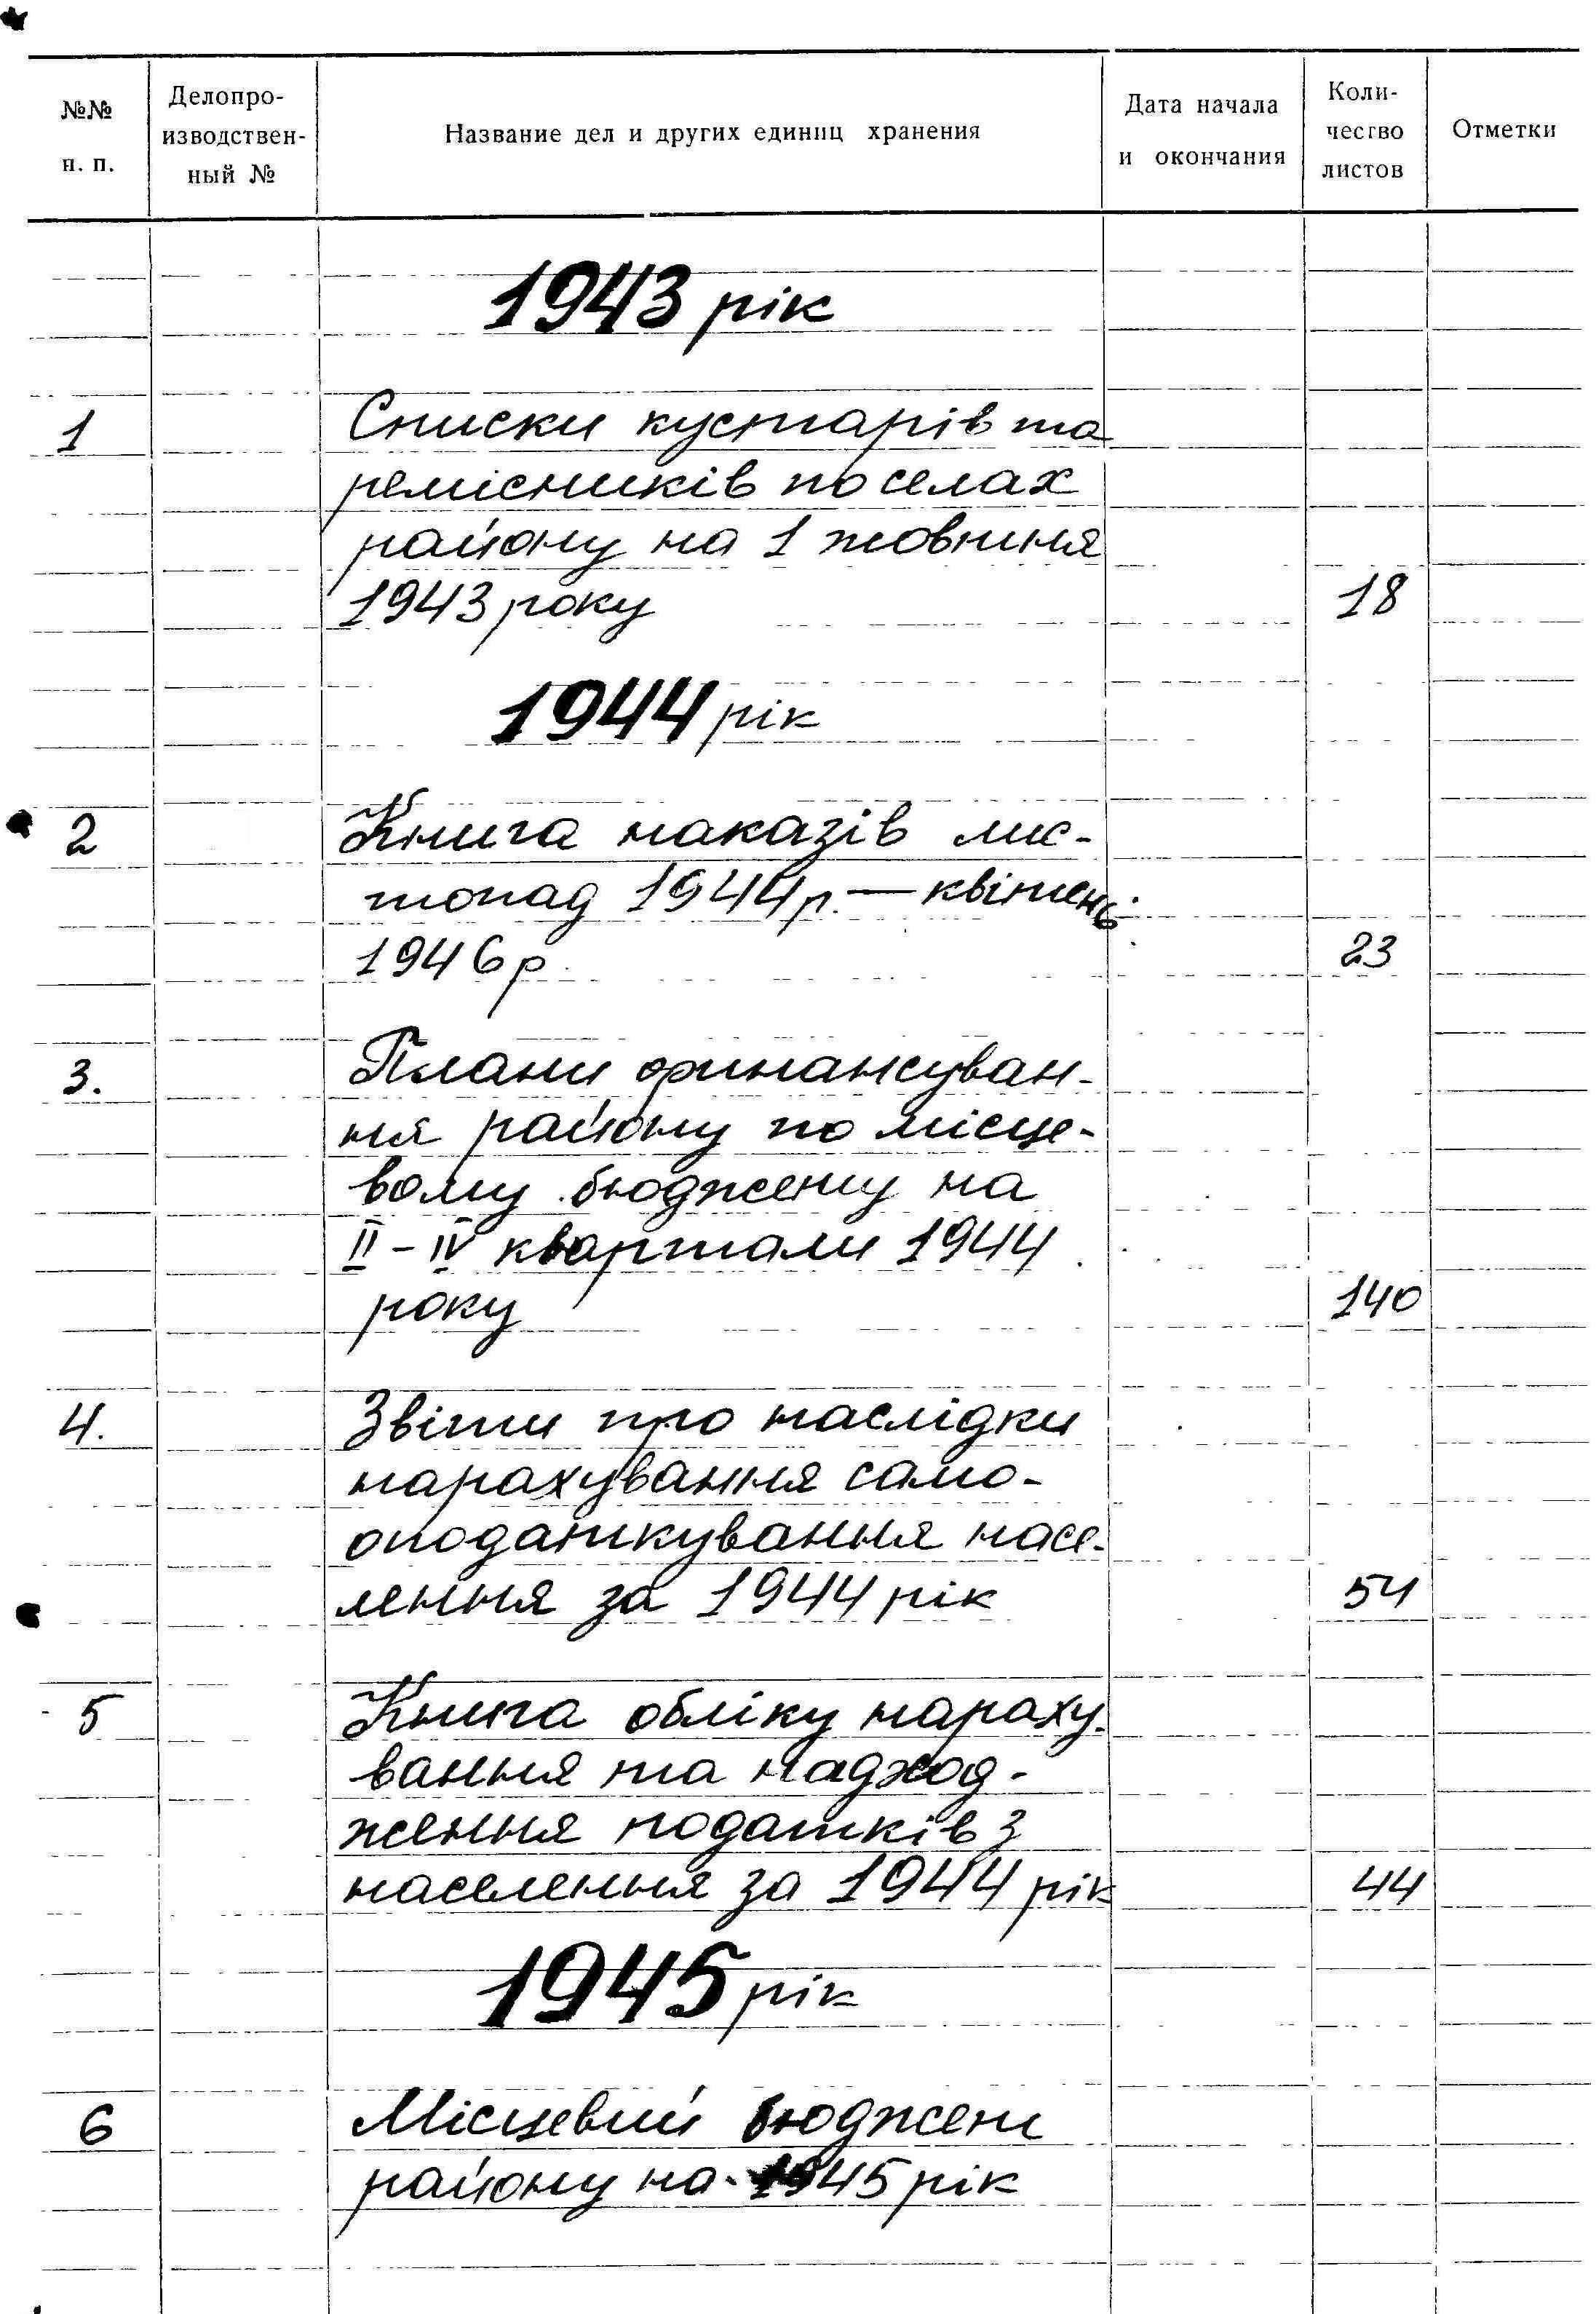 №№ н. п.
Делопро-
изводствен-
ный №
Название дел и других единиц хранения
Дата начала
и окончания
Коли-
чество
листов
Отметки
1943 рік
1 Списки кустарів та
ремісників по селах
району на 1 жовтня
1943 року 18
1944 рік
2 Книга наказів лис-
топад 1944 р. — квітень
1946 р. 23
3. Плани финансуван-
ня району по місце-
вому бюджету на
II – IV квартали 1944
року 140
4. Звіти про наслідки
нарахування само-
оподаткування насе-
лення за 1944 рік 54
5 Книга обліку нараху-
вання та надход-
ження податків з
населення за 1944 рік 44
1945 рік
6 Місцевий бюджет
району на 1945 рік